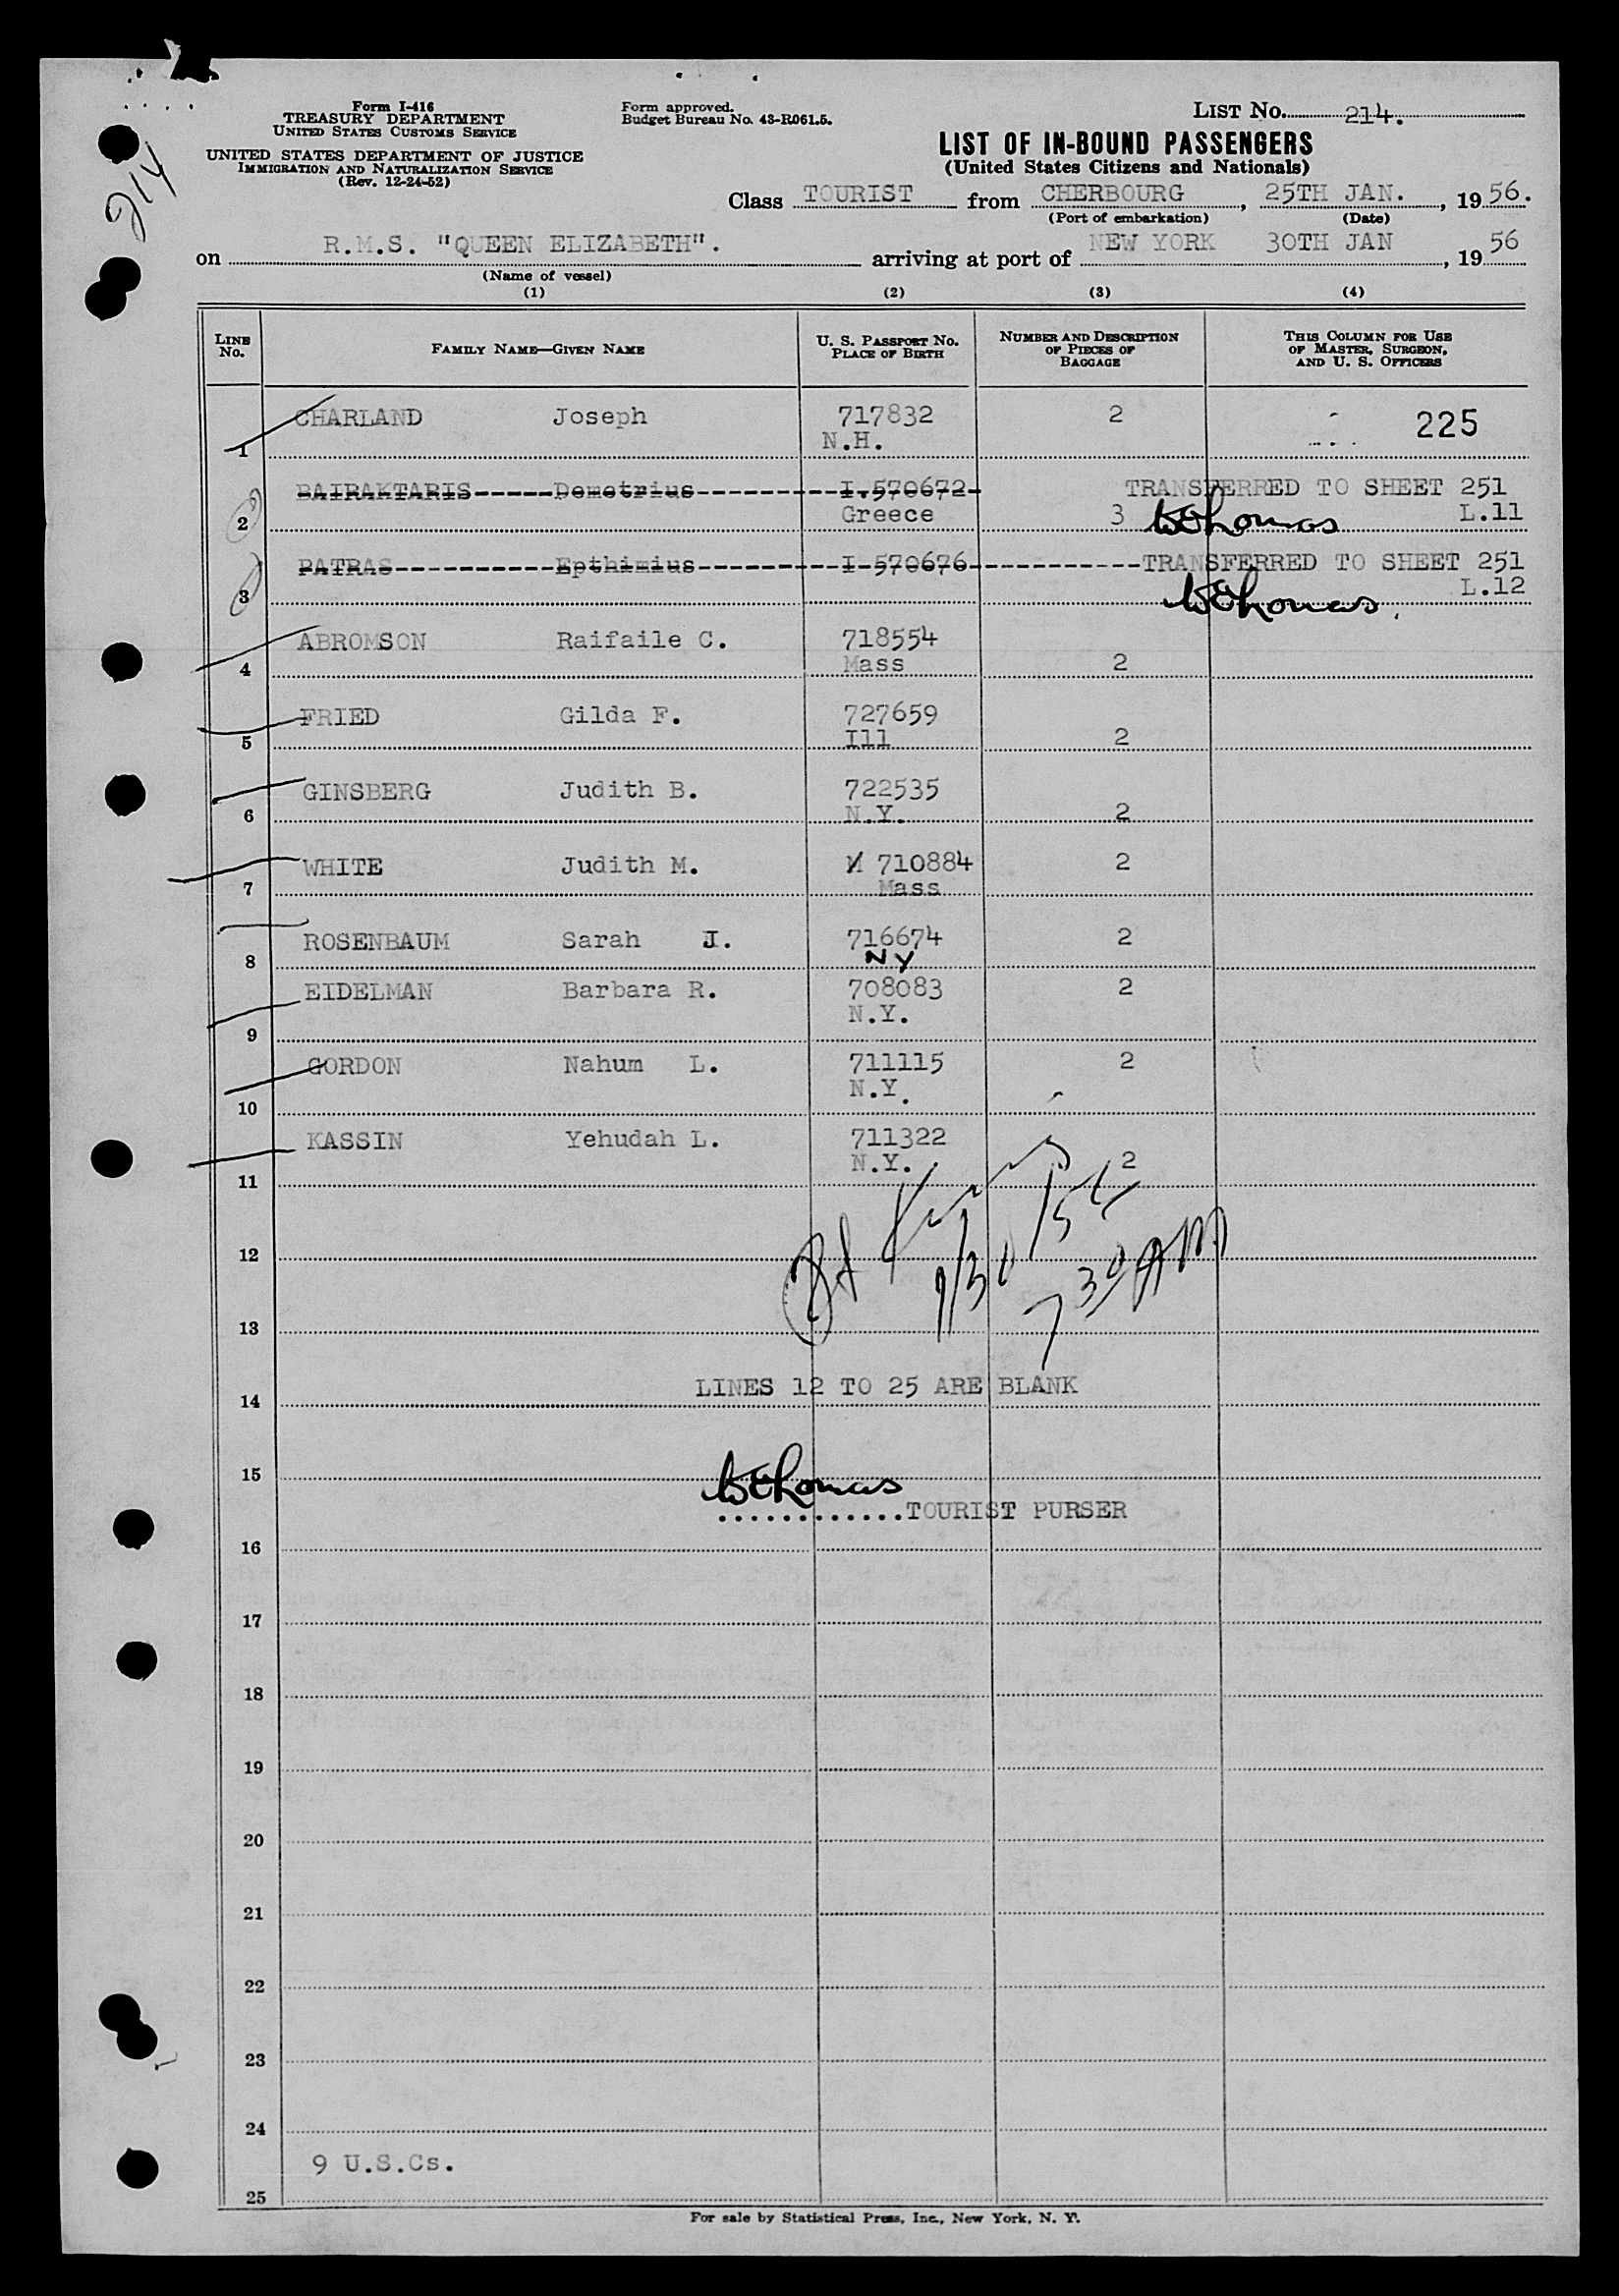 Form I-416
TREASURY DEPARTMENT
UNITED STATES CUSTOMS SERVICE
UNITED STATES DEPARTMENT OF JUSTICE
IMMIGRATION AND NATURALIZATION SERVICE
(Rev. 12-24-52)
Form approved.
Budget Bureau No. 43-R061.5.
LIST No. 214.
214
LIST OF IN-BOUND PASSENGERS
(United States Citizens and Nationals)
Class TOURIST from CHERBOURG, 25TH JAN., 1956.
(Port of embarkation) (Date)
on R.M.S. "QUEEN ELIZABETH". arriving at port of NEW YORK 30TH JAN, 1956
(Name of vessel)
(1) (2) (3) (4)
LINE No. FAMILY NAME—GIVEN NAME U. S. PASSPORT No. PLACE OF BIRTH NUMBER AND DESCRIPTION OF PIECES OF BAGGAGE THIS COLUMN FOR USE OF MASTER, SURGEON, AND U. S. OFFICERS
CHARLAND Joseph 717832 2 225
1 N.H.
BAIRAKTARIS-----Demetrius---------I.570672- TRANSFERRED TO SHEET 251
2 Greece 3 WEThomas L.11
PATRAS----------Epthimius---------I-570676-----------TRANSFERRED TO SHEET 251
3 WEThomas. L.12
ABROMSON Raifaile C. 718554
4 Mass 2
FRIED Gilda F. 727659
5 Ill 2
GINSBERG Judith B. 722535
6 N.Y. 2
WHITE Judith M. 710884 2
7 Mass
ROSENBAUM Sarah J. 716674 2
8 NY
EIDELMAN Barbara R. 708083 2
N.Y.
9
GORDON Nahum L. 711115 2
N.Y.
10
KASSIN Yehudah L. 711322
N.Y. 2
11
12
1/30/56
7 30 AM
13
LINES 12 TO 25 ARE BLANK
14
15
WEThomas
............TOURIST PURSER
16
17
18
19
20
21
22
23
24
9 U.S.Cs.
25
For sale by Statistical Press, Inc., New York, N. Y.